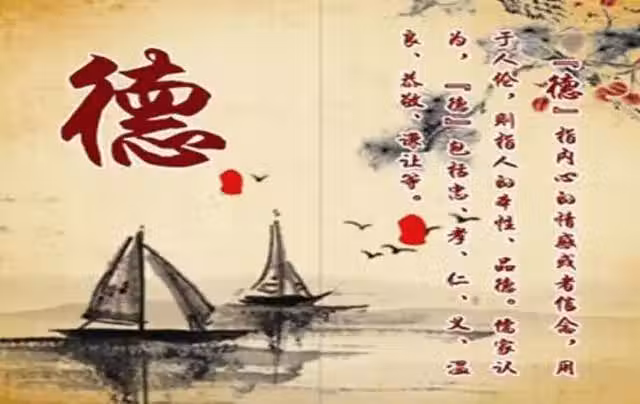 德
『德』指内心的情感或者信念，用
于人伦，则指人的本性、品德。儒家认
为，『德』包括忠、孝、仁、义、温
良、恭敬、谦让等。